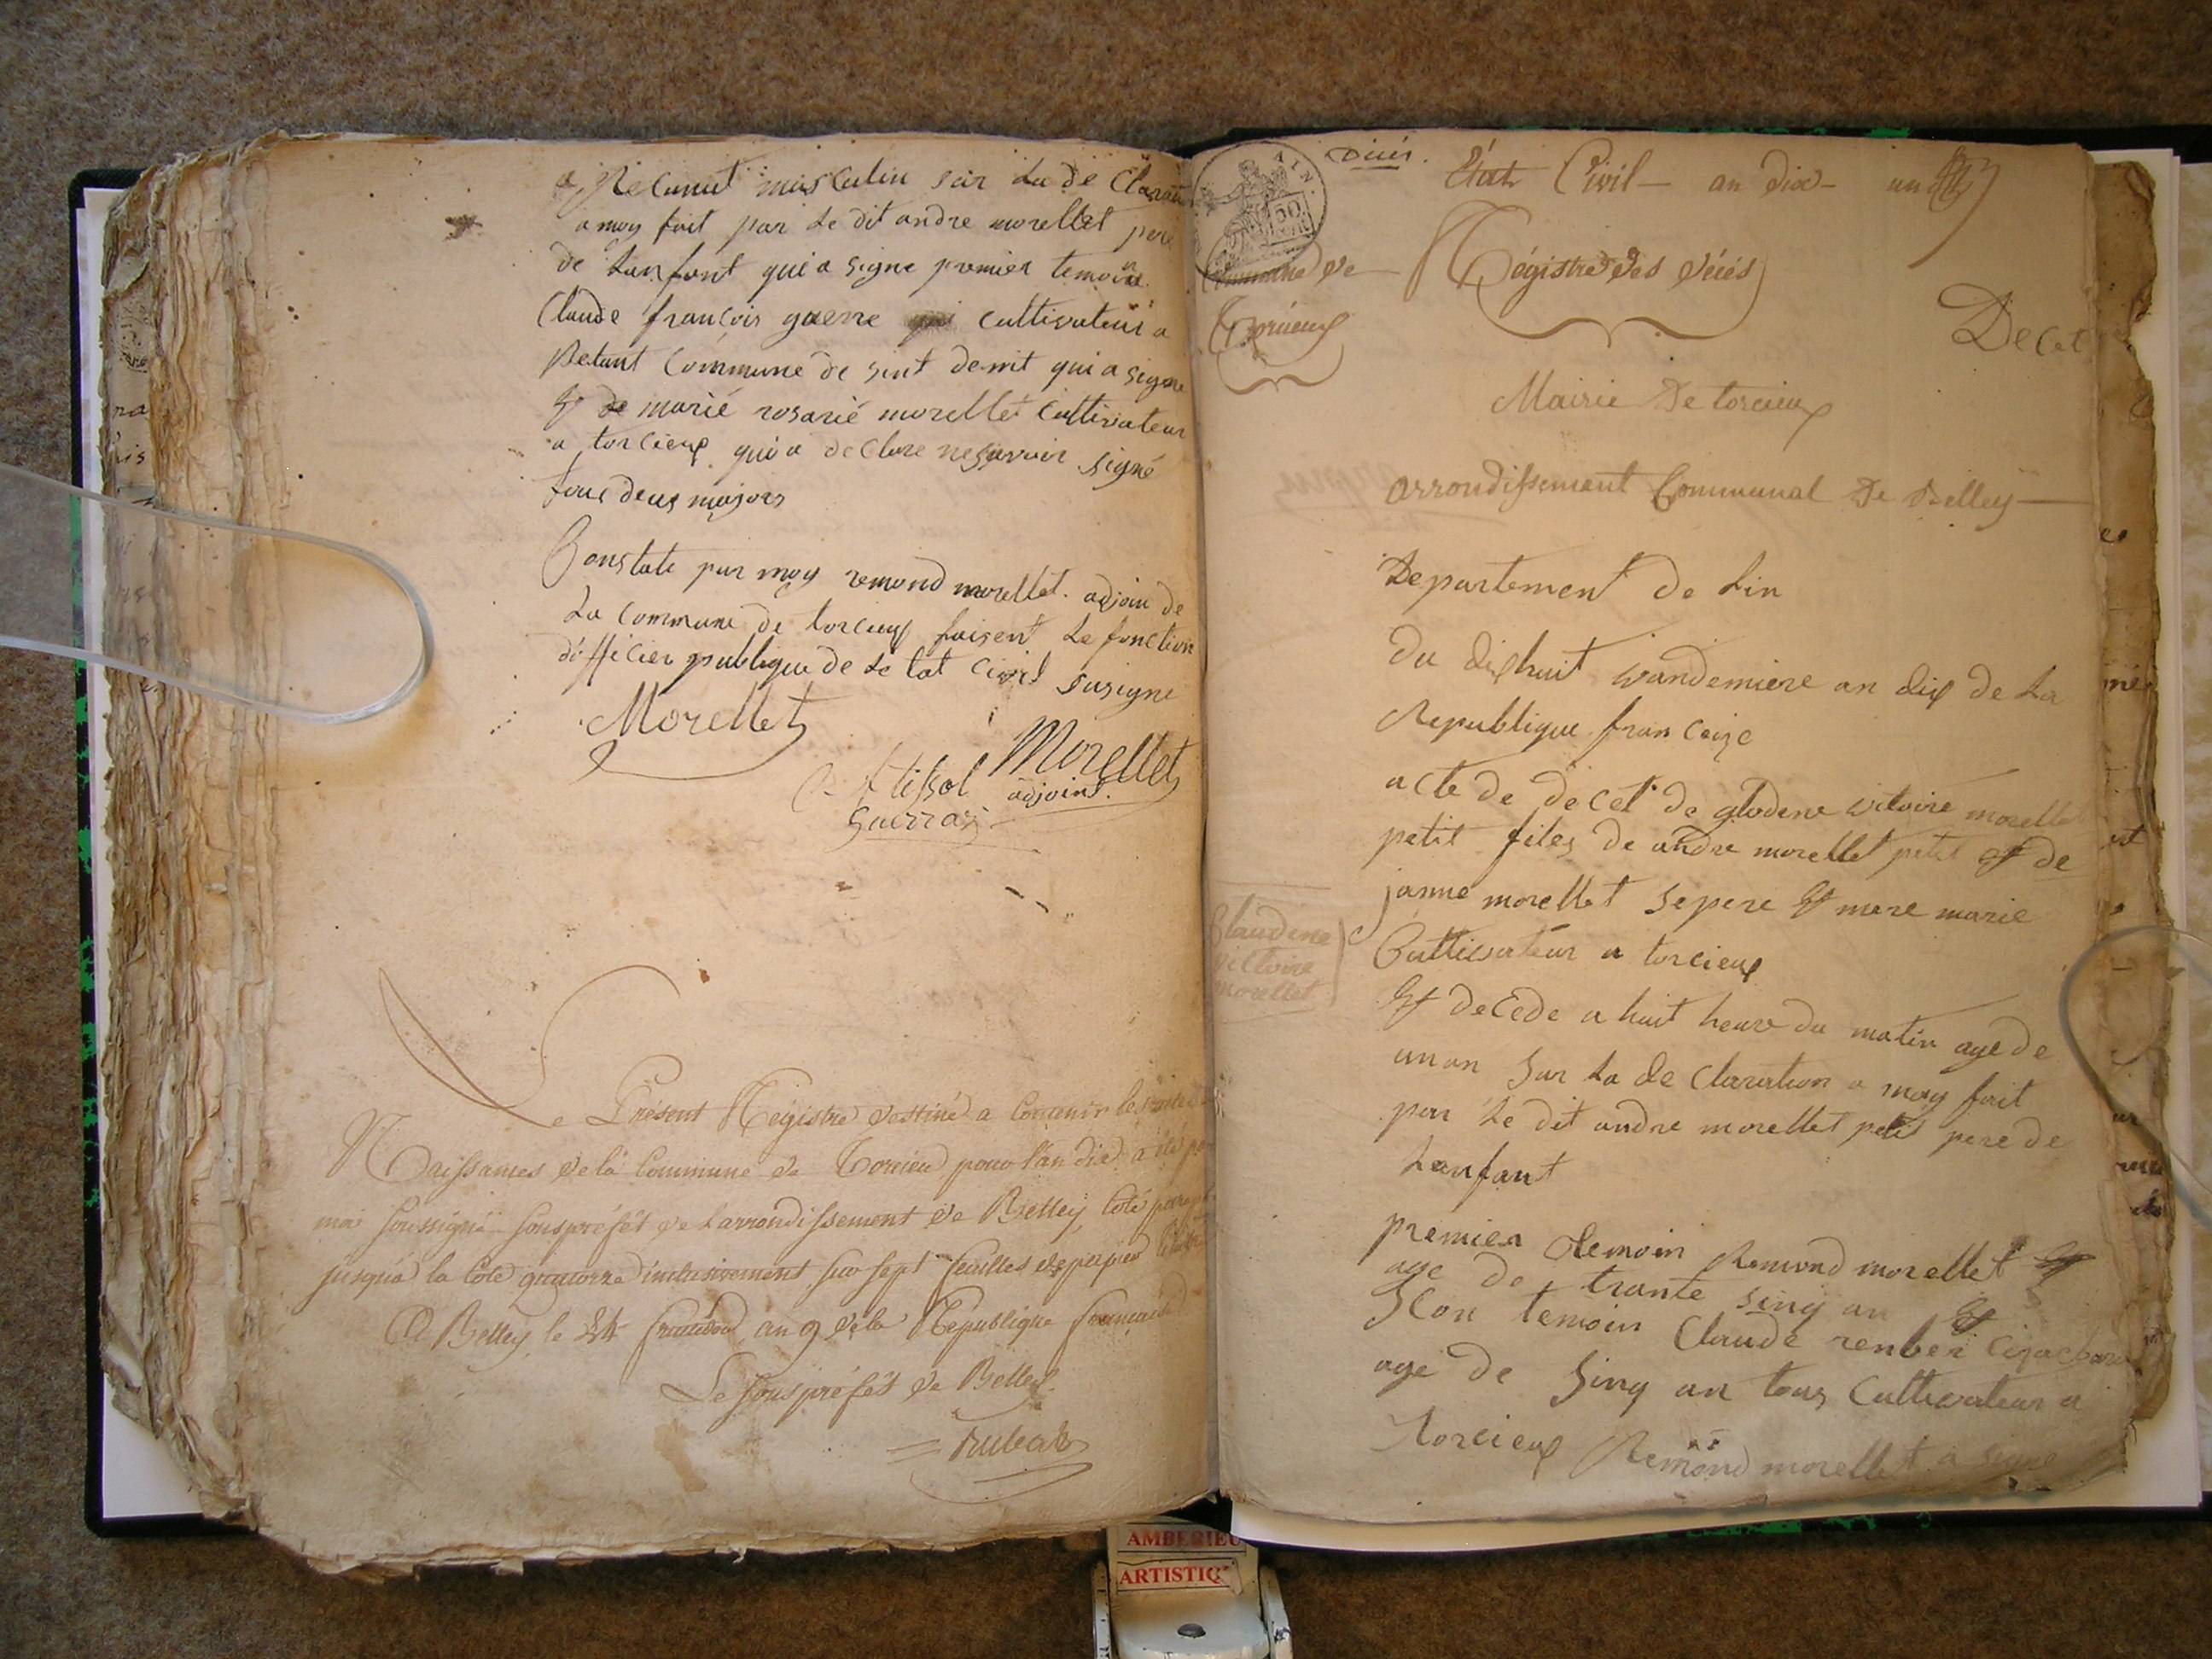 Reconnut masculin sur la de Claration
a moy fait par le dit andre morellet pere
de Lanfant qui a signe premier temoin
Claude françois guerre cultivateur a
Betant Commune de sint denit qui a signe
Et de marié rosarié morellet Cultivateur
a torcieux qui a declare nesavoir signé
tous deux majors
Constate par moy remond morellet. adjoin de
La Commune de torcieux faisent Le fonction
dofficier publique de Le tat Civil susigne
Morellet
tissot Morellet
adjoint.
Guerra
Le Présent Régistre destiné a Contenir les
Naissances de la Commune de Torcieu pour l'an dix a été
moi soussigné souspréfét de Larrondissement de Belley, Coté
jusqu'a la Cote quatorze inclusivement sur sept feuilles de papier
A Belley, le fructidor an 9 de la République française
Le souspréfét de Belley.
Rubat
AIN.
50
Décés.
État Civil — an dix — un
Commune de
Torcieux
Régistre des Décés
Decet
Mairie De torcieux
arrondissement Communal De Belley —
Departement de Lin
Du dixhuit vandemiere an dix de La
Republique francoize
acte de decet de glodene vitoire morellet
petit files de andre morellet petit et de
janne morellet sepere Et mere marie
Cultivateur a torcieux
Claudine
victoire
morellet
Et decede a huit heure du matin age de
un an sur La de Claration a moy fait
par Le dit andre morellet petit pere de
Lanfant
premier temoin Remond morellet
age de trante sinq an Et
Scon temoin Claude
age de sinq an tous Cultivateur a
Torcieux Remond morellet a signe
AMBERIEU
ARTISTIQ